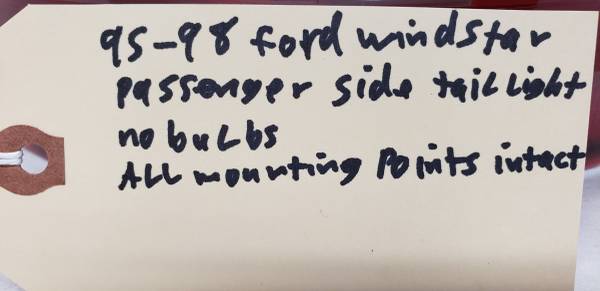 95-98 ford windstar
passenger side tail light
no bulbs
ALL mounting points intact